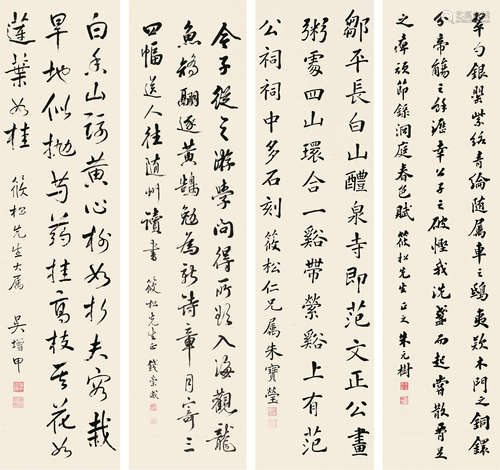 翠勺銀罌紫絡青綸隨属車之鴟夷欵木門之銅鐶
分帝觴之餘瀝幸公子之破慳我洗盞而起嘗散腰足
之痺頑節錄洞庭春色賦 筱松先生正之 朱元樹
鄒平長白山醴泉寺即范文正公畫
粥處四山環合一谿帶縈谿上有范
公祠祠中多石刻 筱松仁兄属朱寶瑩
今子從之游學問得所欲入海觀龍
魚矯翮逐黃鵠勉為新詩章月寄三
四幅 送人往隨州讀書 筱松先生正 錢崇威
白香山詠黃心樹如折夫容栽
旱地似抛芍葯挂高枝其花如
蓮葉如桂 筱松先生大属 吳增甲